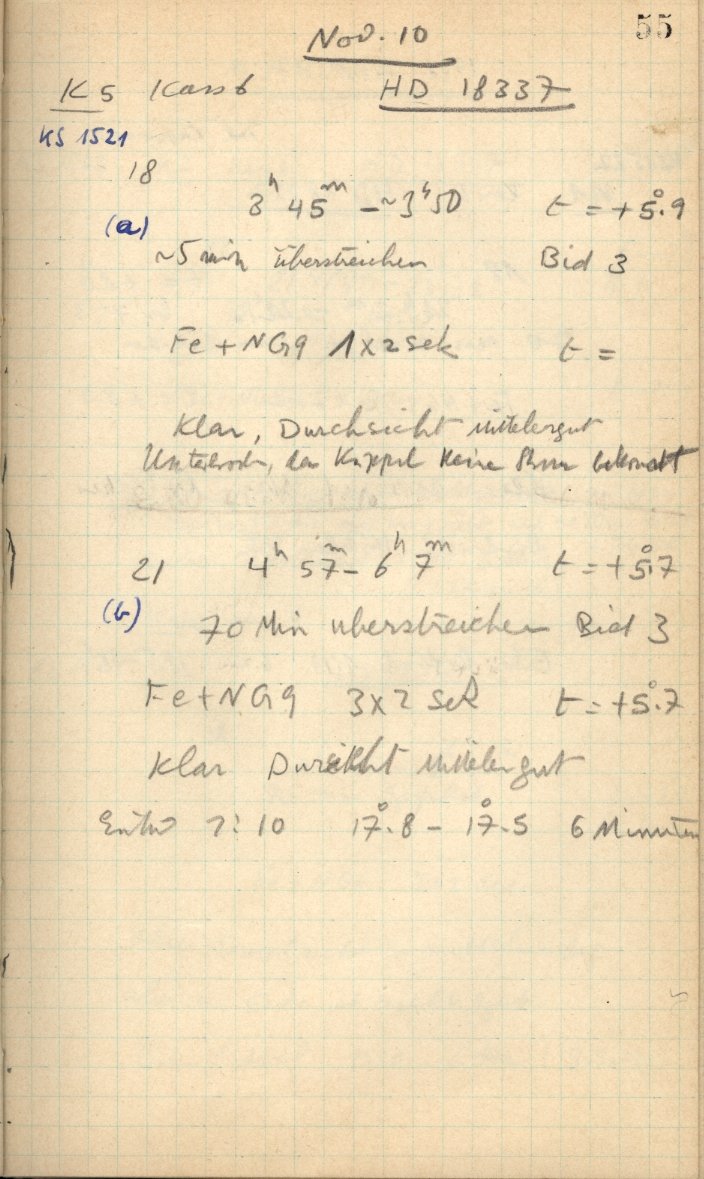 55
Nov. 10
KS Kass 6 HD 18337
KS 1521
18 3h 45m - ~3h 50 t = +5°.9
(a)
~5 min überstreichen Bid 3
Fe + NG9 1 x 2 sek t =
Klar, Durchsicht mittelergut
der Kuppel keine bekommt
21 4h 57m - 6h 7m t = +5°.7
(b)
70 Min uberstreichen Bid 3
Fe + NG9 3 x 2 sek t = +5°.7
Klar Dursicht mittelergut
Entw 7:10 17°.8 - 17°.5 6 Minuten